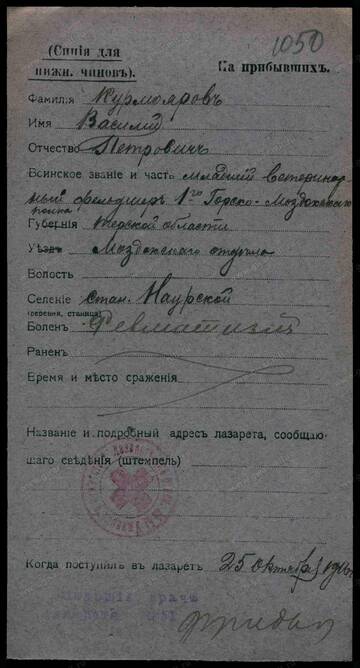 1050
(Синія для
нижн. чиновъ).
На прибывшихъ.
Фамилія Курмояровъ
Имя Василій
Отчество Петровичъ
Воинское званіе и часть младшій ветеринар-
ный фельдшеръ 1го Горско-Моздокскаго
полка
Губернія Терской области
Уѣздъ Моздокскаго отдѣла
Волость
Селеніе стан. Наурской
(деревня, станица)
Боленъ Ревматизмъ
Раненъ
Время и мѣсто сраженія
Названіе и подробный адресъ лазарета, сообщаю-
щаго свѣдѣнія (штемпель)
Когда поступилъ въ лазаретъ 25 октября 1916
врачъ